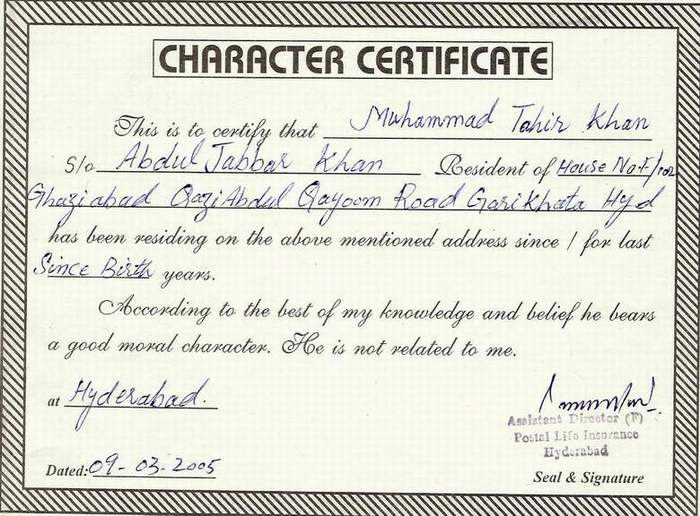 CHARACTER CERTIFICATE
This is to certify that Muhammad Tahir Khan
S/o Abdul Jabbar Khan Resident of House No F/102
Ghaziabad Qazi Abdul Qayoom Road Gari Khata Hyd
has been residing on the above mentioned address since / for last
Since Birth years.
According to the best of my knowledge and belief he bears
a good moral character. He is not related to me.
at Hyderabad.
Assistant Director (F)
Postal Life Insurance
Hyderabad
Dated: 09-03-2005
Seal & Signature